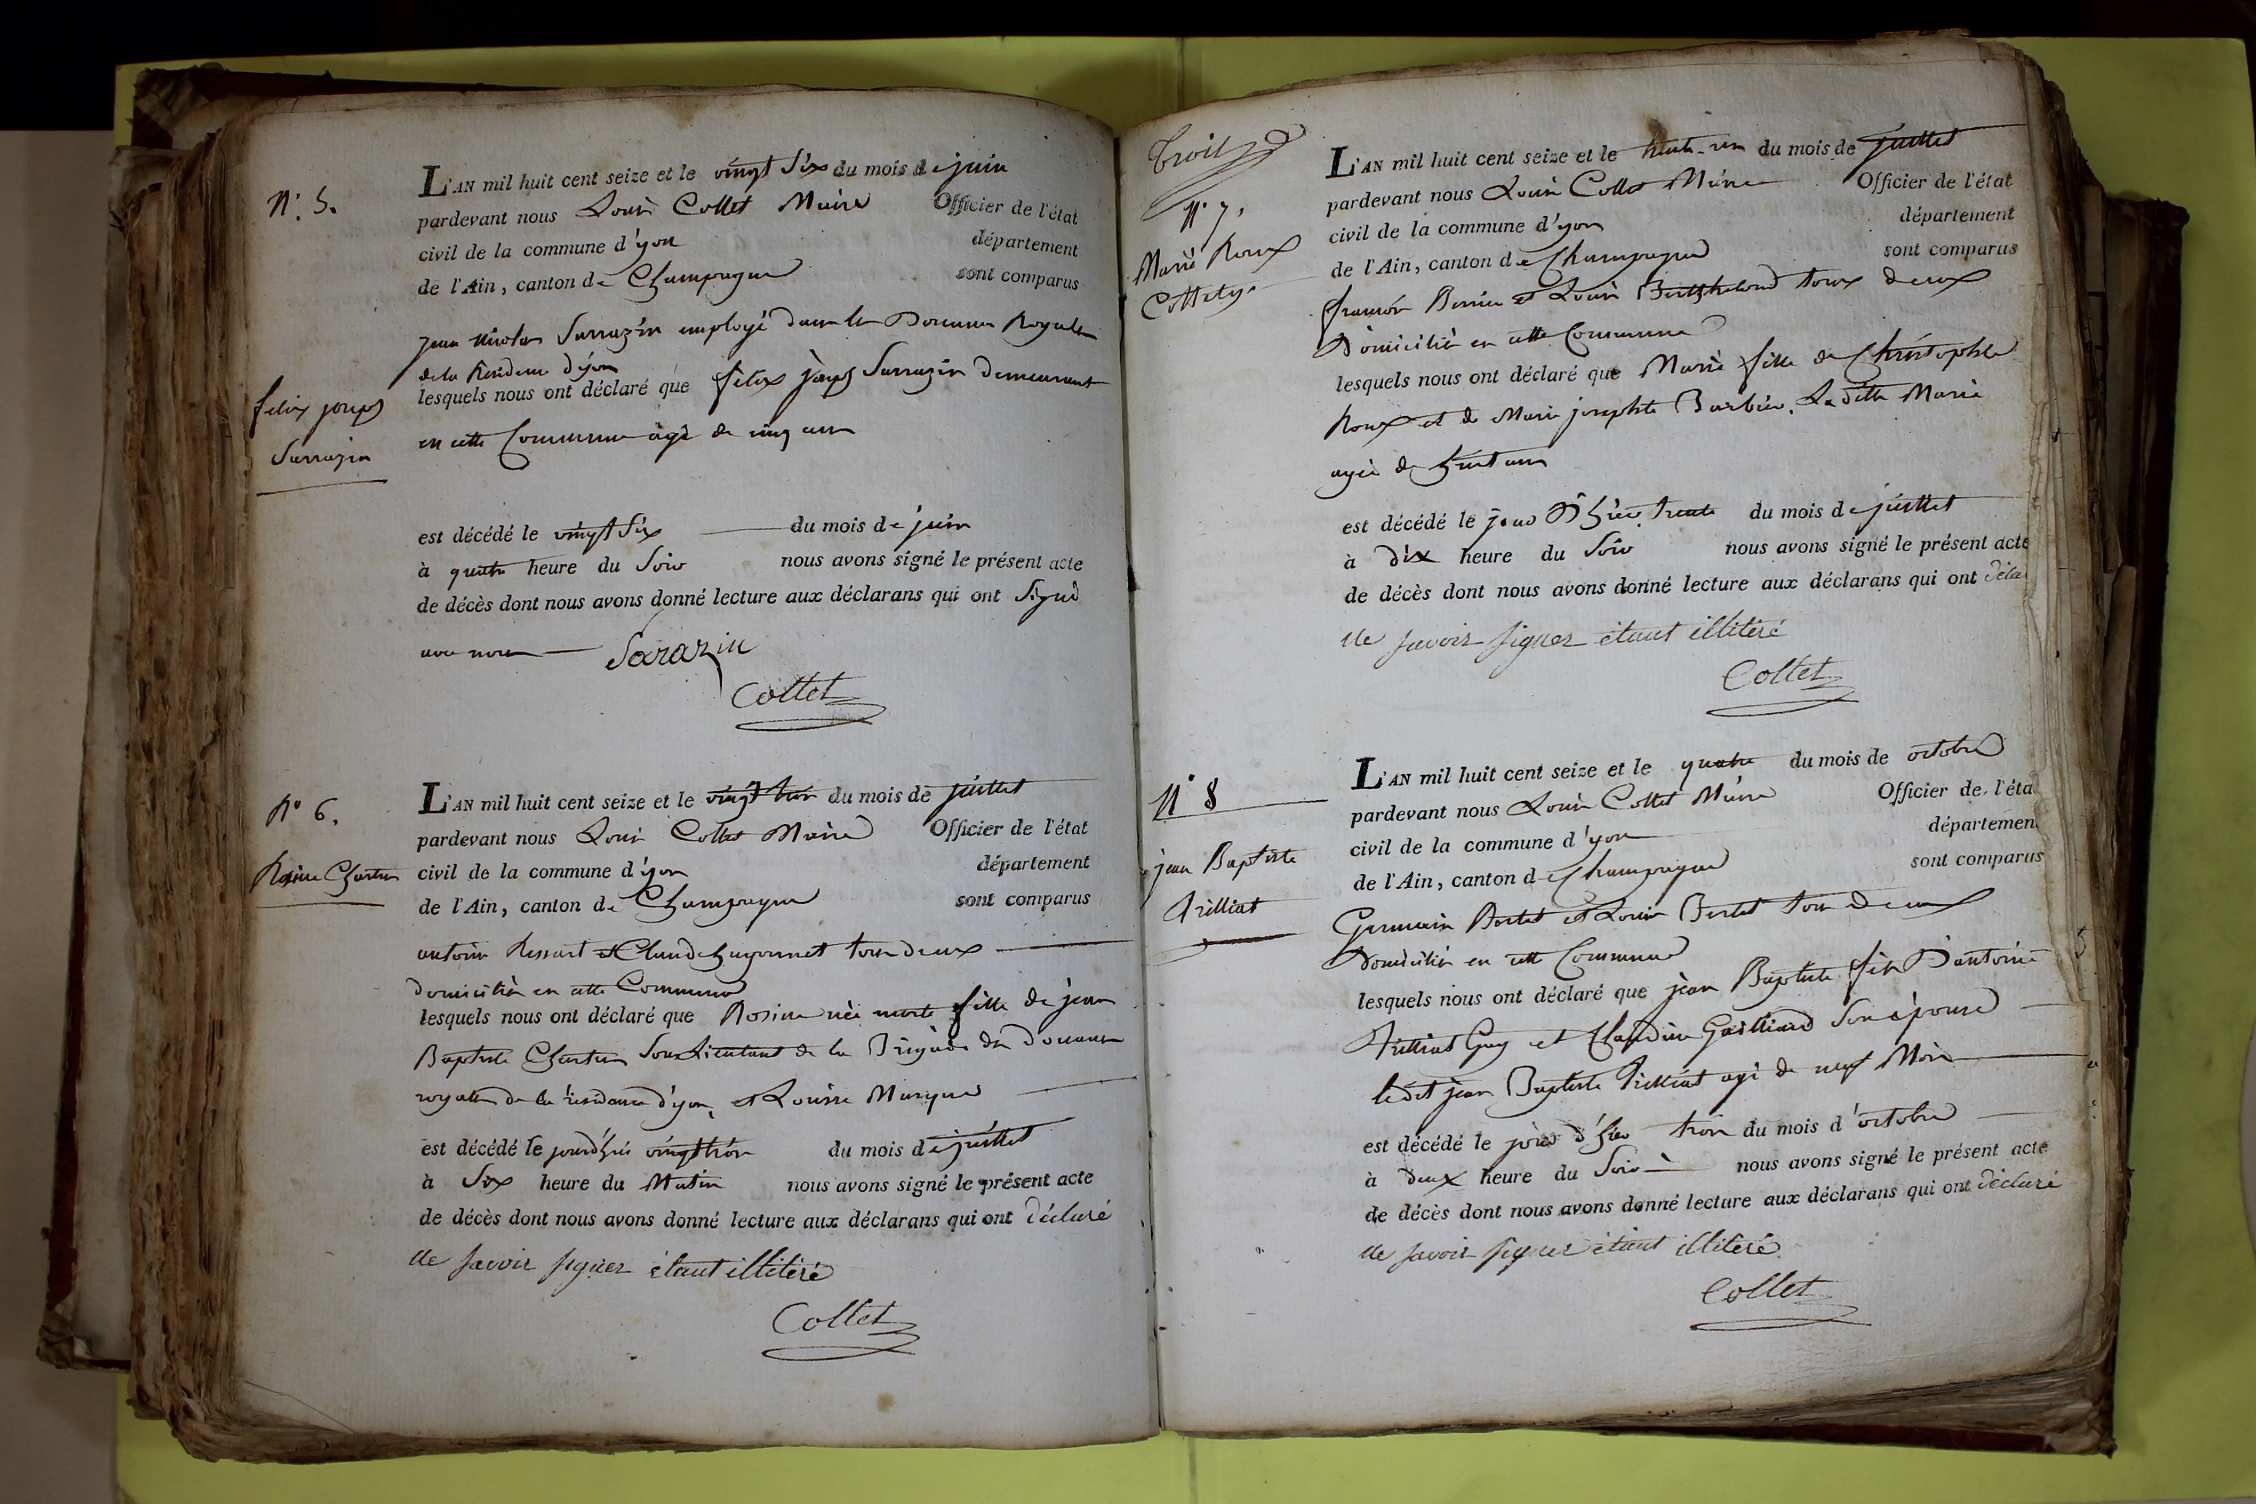 N.° 5.
L'AN mil huit cent seize et le vingt six du mois de juin
pardevant nous Louis Collet Maire Officier de l'état
civil de la commune d'yon département
de l'Ain, canton de Champagne sont comparus
jean nicolas Sarrazin employé dans les Douanes Royales
de la Residence d'yon
lesquels nous ont déclaré que felix joseph Sarrazin demeurant
en cette Commune agé de cinq ans
felix joseph
Sarrazin
est décédé le vingt six du mois de juin
à quatre heure du Soir nous avons signé le présent acte
de décès dont nous avons donné lecture aux déclarans qui ont Signé
avec nous Sarazin
Collet
N° 6.
Rosine Chartier
L'AN mil huit cent seize et le vingt trois du mois de juillet
pardevant nous Louis Collet Maire Officier de l'état
civil de la commune d'yon département
de l'Ain, canton de Champagne sont comparus
antoine et Claude hugonnet tous deux
domiciliés en cette Commune
lesquels nous ont déclaré que Rosine née morte fille de jean
Baptiste Sous Lieutenant de la Brigade des Douanes
royalles de la residance d'yon, et Louise
est décédé le jourd'hui vingt trois du mois de juillet
à Six heure du Matin nous avons signé le présent acte
de décès dont nous avons donné lecture aux déclarans qui ont déclaré
ne savoir signer étant illitéré
Collet
trois
N° 7.
Marie Roux
L'AN mil huit cent seize et le trente-un du mois de juillet
pardevant nous Louis Collet Maire Officier de l'état
civil de la commune d'yon département
de l'Ain, canton de Champagne sont comparus
françois et Louis tous deux
Domiciliés en cette Commune
lesquels nous ont déclaré que Marie fille de Christophle
Roux et de Marie josephte Barbier, Laditte Marie
agée de huit ans
est décédé le jour d'hier trente du mois de juillet
à dix heure du Soir nous avons signé le présent acte
de décès dont nous avons donné lecture aux déclarans qui ont décla
ne savoir signer étant illitéré
Collet
N° 8
jean Baptiste
Trilliat
L'AN mil huit cent seize et le quatre du mois de octobre
pardevant nous Louis Collet Maire Officier de l'éta
civil de la commune d'yon départemen
de l'Ain, canton de Champagne sont comparus
Germain Bertet et Louis Bertet tous deux
Domiciliés en cette Commune
lesquels nous ont déclaré que jean Baptiste fils D'antoine
Trilliat Guy et Claudine Gailliard Son épouse
ledit jean Baptiste Trilliat agé de neuf Mois
est décédé le jour d'hier trois du mois d'octobre
à deux heure du Soir nous avons signé le présent acte
de décès dont nous avons donné lecture aux déclarans qui ont déclaré
ne savoir signer étant illiteré
Collet